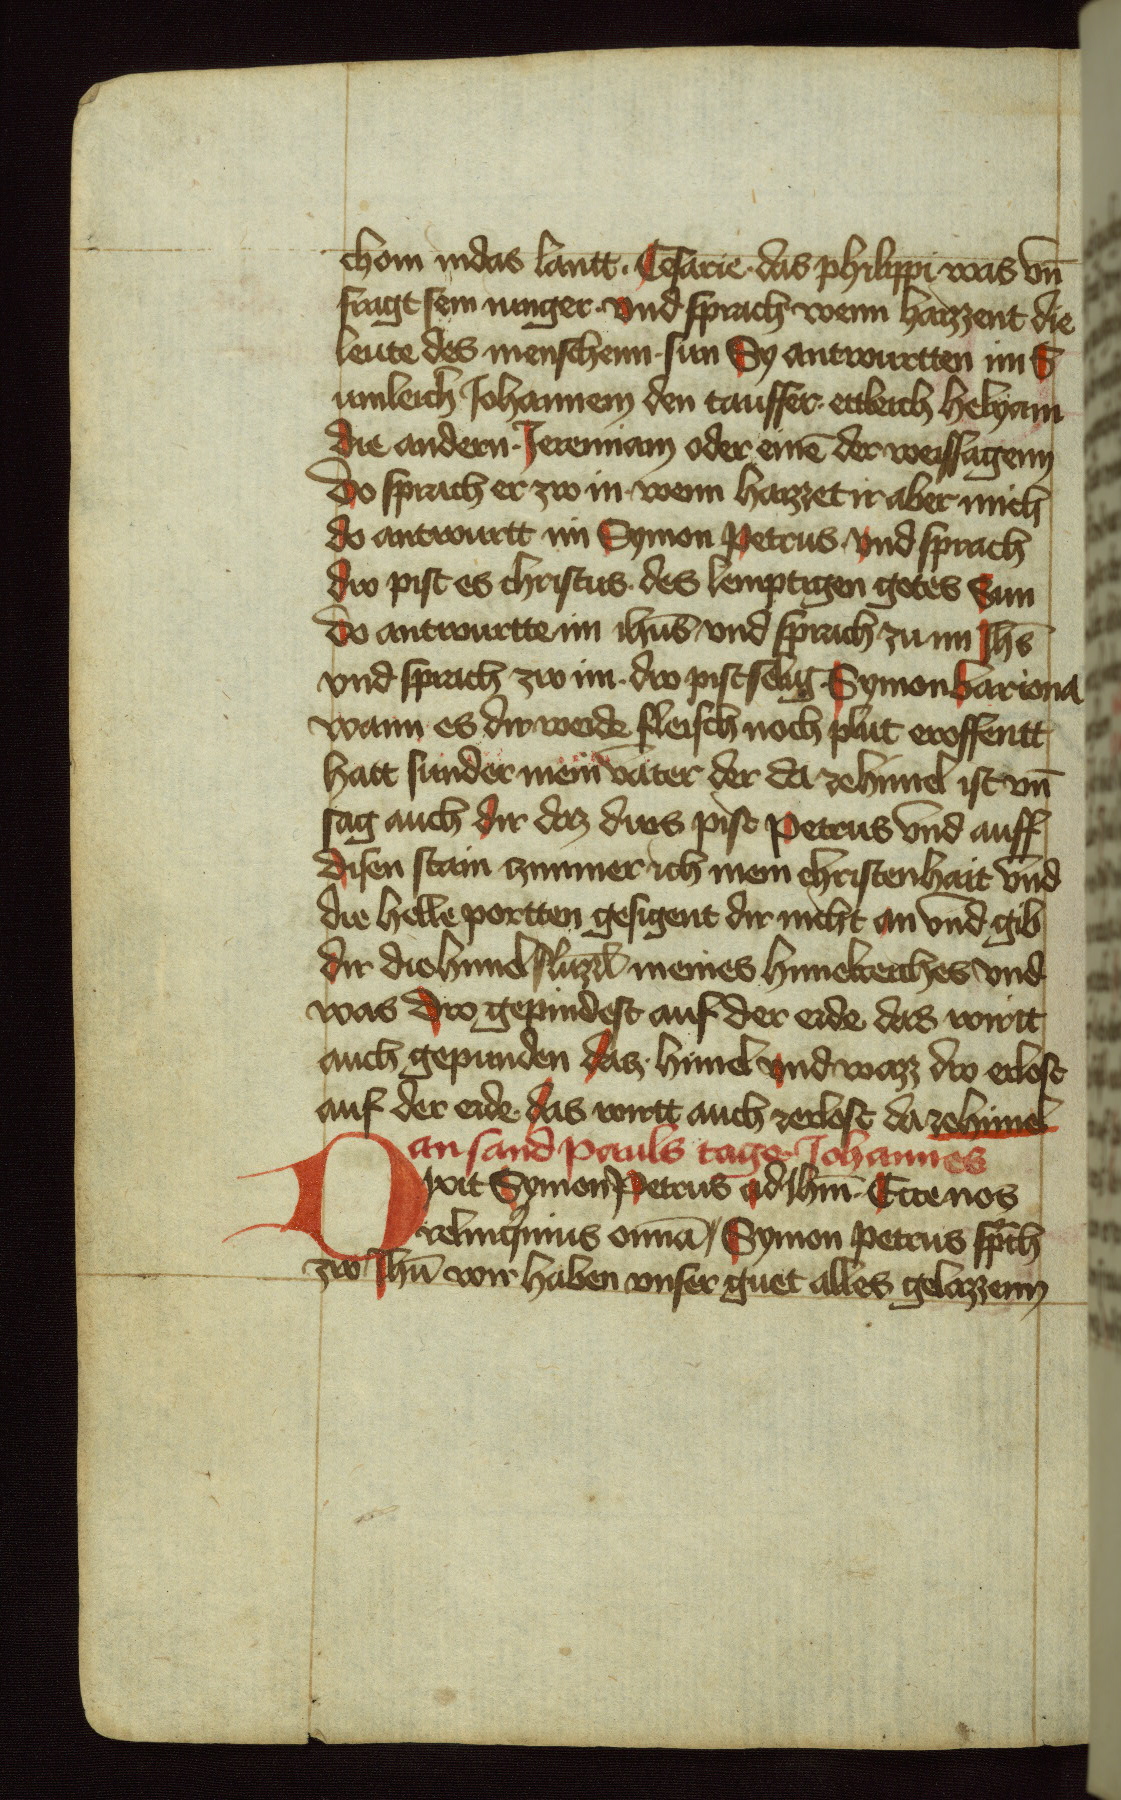 chom indas lantt. Cesarie. das philippi was vn̄
fragt sein iunger. vnd sprach wenn hazzent die
leute des menschenn. sun Sy antwurtten im S
umleich Johannem den tauffer. ettleich helyam
die andern. Jeremiam oder einē der weissagenn
Do sprach er zw in. wenn hazzet ir aber mich
do antwurtt im Symon Petrus. vnd sprach
dw pist es christus. des lemptigen gotes Sun
Do antwurtte im ihūs vnd sprach zu im Jhs̄
vnd sprach zw im. dw pist selig. Symon bariona
wann es dir weder fleisch noch plut eroffentt
hatt sunder mein vater der da ze himel ist vn̄
sag auch dir daz dues pist Petrus vnd auff
disen stain zimmer ich mein christenhait vnd
die helle portten gesigent dir nicht an vnd gib
dir die himel slüzzl meines himelreiches vnd
was dw gepindest auf der erde das wirtt
auch gepunden daz. himel vnd wazz dw erlost
auf der erde. das wirtt auch zerlost da ze himel
an sand pauls tage. Johannes
Dixit Symon Petrus ad Jhm̄. Ecce nos
relinqimus omīa / Symon Petrus sprch
zw Jhū wir haben vnser guet alles gelazzenn